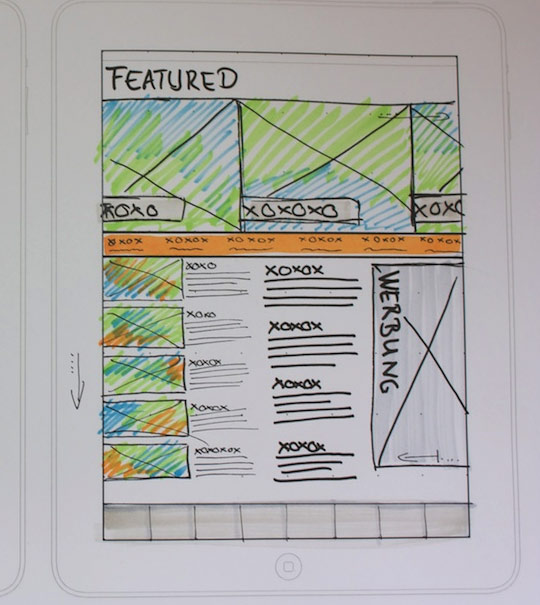 FEATURED
XOXO
XOXOXO
XOXO
XOXOX XOXOX XOXOX XOXOX XOXOX XOXOX
XOXO
XOXO
XOXOX
XOXOX
XOXOXOX
XOXOX
XOXOX
XOXOX
XOXOX
WERBUNG